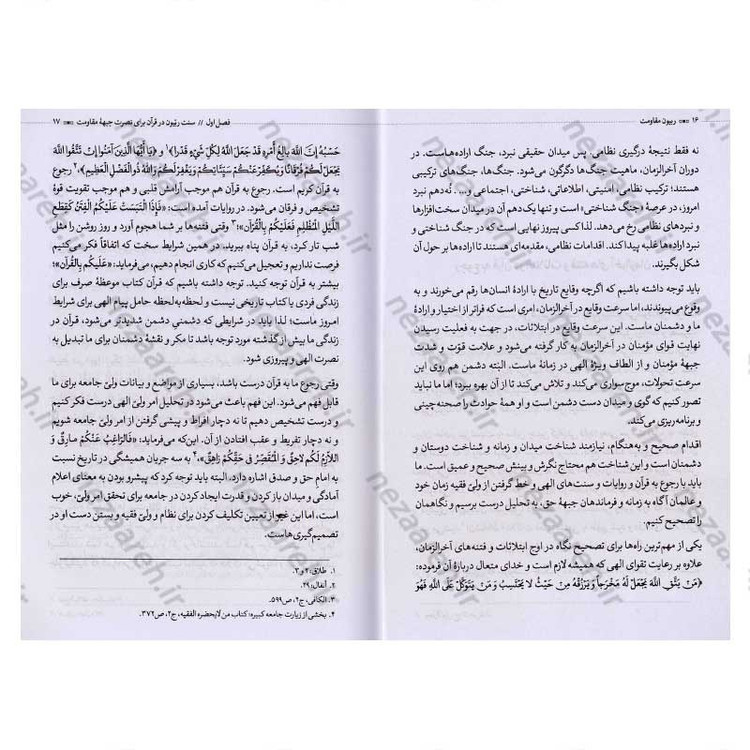 ۱۶ ربیون مقاومت
نه فقط نتیجهٔ درگیری نظامی. پس میدان حقیقی نبرد، جنگ اراده‌هاست. در
دوران آخرالزمان، ماهیت جنگ‌ها دگرگون می‌شود. جنگ‌ها، جنگ‌های ترکیبی
هستند؛ ترکیب نظامی، امنیتی، اطلاعاتی، شناختی، اجتماعی و... . نُه‌دهم نبرد
امروز، در عرصهٔ (جنگ شناختی) است و تنها یک‌دهم آن در میدان سخت‌افزارها
و نبردهای نظامی رخ می‌دهد. لذا کسی پیروز نهایی است که در جنگ شناختی و
نبرد اراده‌ها غلبه پیدا کند. اقدامات نظامی، مقدمه‌ای هستند تا اراده‌ها بر حول آن
شکل بگیرند.
باید توجه داشته باشیم که اگرچه وقایع تاریخ با ارادهٔ انسان‌ها رقم می‌خورند و به
وقوع می‌پیوندند، اما سرعت وقایع در آخرالزمان، امری است که فراتر از اختیار و ارادهٔ
ما و دشمنان ماست. این سرعت وقایع در ابتلائات، در جهت به فعلیت رسیدن
نهایت قوای مؤمنان در آخرالزمان به کار گرفته می‌شود و علامت قوّت و شدت
جبههٔ مؤمنان و از الطاف ویژهٔ الهی در زمانهٔ ماست. البته دشمن هم روی این
سرعت تحولات، موج‌سواری می‌کند و تلاش می‌کند تا از آن بهره ببرد؛ اما ما نباید
تصور کنیم که گوی و میدان دست دشمن است و او همهٔ حوادث را صحنه‌چینی
و برنامه‌ریزی می‌کند.
اقدام صحیح و به‌هنگام، نیازمند شناخت میدان و زمانه و شناخت دوستان و
دشمنان است و این شناخت هم محتاج نگرش و بینش صحیح و عمیق است. ما
باید با رجوع به قرآن و روایات و سنت‌های الهی و خط گرفتن از ولیّ فقیه زمان خود
و عالمان آگاه به زمانه و فرماندهان جبههٔ حق، به تحلیل درست برسیم و نگاهمان
را تصحیح کنیم.
یکی از مهم‌ترین راه‌ها برای تصحیح نگاه در اوج ابتلائات و فتنه‌های آخرالزمان،
علاوه بر رعایت تقوای الهی که همیشه لازم است و خدای متعال دربارهٔ آن فرموده:
﴿مَن یَتَّقِ اللَّهَ یَجْعَلْ لَهُ مَخْرَجاً وَ یَرْزُقْهُ مِنْ حَیْثُ لا یَحْتَسِبُ وَ مَنْ یَتَوَکَّلْ عَلَی اللَّهِ فَهُوَ
فصل اول // سنت ربّیون در قرآن برای نصرت جبههٔ مقاومت ۱۷
حَسْبُهُ إِنَّ اللَّهَ بالِغُ أَمْرِهِ قَدْ جَعَلَ اللَّهُ لِکُلِّ شَیْءٍ قَدْراً﴾۱ و ﴿یا أَیُّهَا الَّذِینَ آمَنُوا إِن تَتَّقُوا اللَّهَ
یَجْعَل لَّکُمْ فُرْقَانًا وَیُکَفِّرْ عَنکُمْ سَیِّئَاتِکُمْ وَیَغْفِرْ لَکُمْ وَاللَّهُ ذُو الْفَضْلِ الْعَظِیمِ﴾،۲ رجوع
به قرآن کریم است. رجوع به قرآن هم موجب آرامش قلبی و هم موجب تقویت قوهٔ
تشخیص و فرقان می‌شود. در روایات آمده است: «فَإِذَا الْتَبَسَتْ عَلَیْکُمُ الْفِتَنُ کَقِطَعِ
اللَّیْلِ الْمُظْلِمِ فَعَلَیْکُمْ بِالْقُرْآنِ»؛۳ وقتی فتنه‌ها بر شما هجوم آورد و روز روشن را مثل
شب تار کرد، به قرآن پناه ببرید. در همین شرایط سخت که اتفاقاً فکر می‌کنیم
فرصت نداریم و تعجیل می‌کنیم که کاری انجام دهیم، می‌فرماید: «عَلَیکُم بِالقُرآن»؛
بیشتر به قرآن توجه کنید. توجه داشته باشیم که قرآن کتاب موعظهٔ صرف برای
زندگی فردی یا کتاب تاریخی نیست و لحظه‌به‌لحظه حامل پیام الهی برای شرایط
امروز ماست؛ لذا باید در شرایطی که دشمنیِ دشمن شدیدتر می‌شود، قرآن در
زندگی ما بیش از گذشته مورد توجه باشد تا مکر و نقشهٔ دشمنان برای ما تبدیل به
نصرت الهی و پیروزی شود.
وقتی رجوع ما به قرآن درست باشد، بسیاری از مواضع و بیانات ولیّ جامعه برای ما
قابل فهم می‌شود. این فهم باعث می‌شود در تحلیل امر ولیّ الهی درست فکر کنیم
و درست تشخیص دهیم تا نه دچار افراط و پیشی گرفتن از امر ولیّ جامعه شویم
و نه دچار تفریط و عقب افتادن از آن. این‌که می‌فرماید: «فَالرّاغِبُ عَنْکُمْ مارِقٌ وَ
اللّازِمُ لَکُمْ لاحِقٌ وَ الْمُقَصِّرُ فِی حَقِّکُمْ زاهِقٌ»،۴ به سه جریان همیشگی در تاریخ نسبت
به امام حق و صدق اشاره دارد. البته باید توجه کرد که پیشرو بودن به معنای اعلام
آمادگی و میدان باز کردن و قدرت ایجاد کردن در جامعه برای تحقق امر ولیّ، خوب
است، اما این غیر از تعیین تکلیف کردن برای نظام و ولیّ فقیه و بستن دست او در
تصمیم‌گیری‌ها‌ست.
۱. طلاق: ۲ و ۳.
۲. أنفال: ۲۹.
۳. الکافی، ج۲، ص۵۹۹.
۴. بخشی از زیارت جامعه کبیره؛ کتاب من لایحضره الفقیه، ج۲، ص۳۷۲.
nezaareh.ir